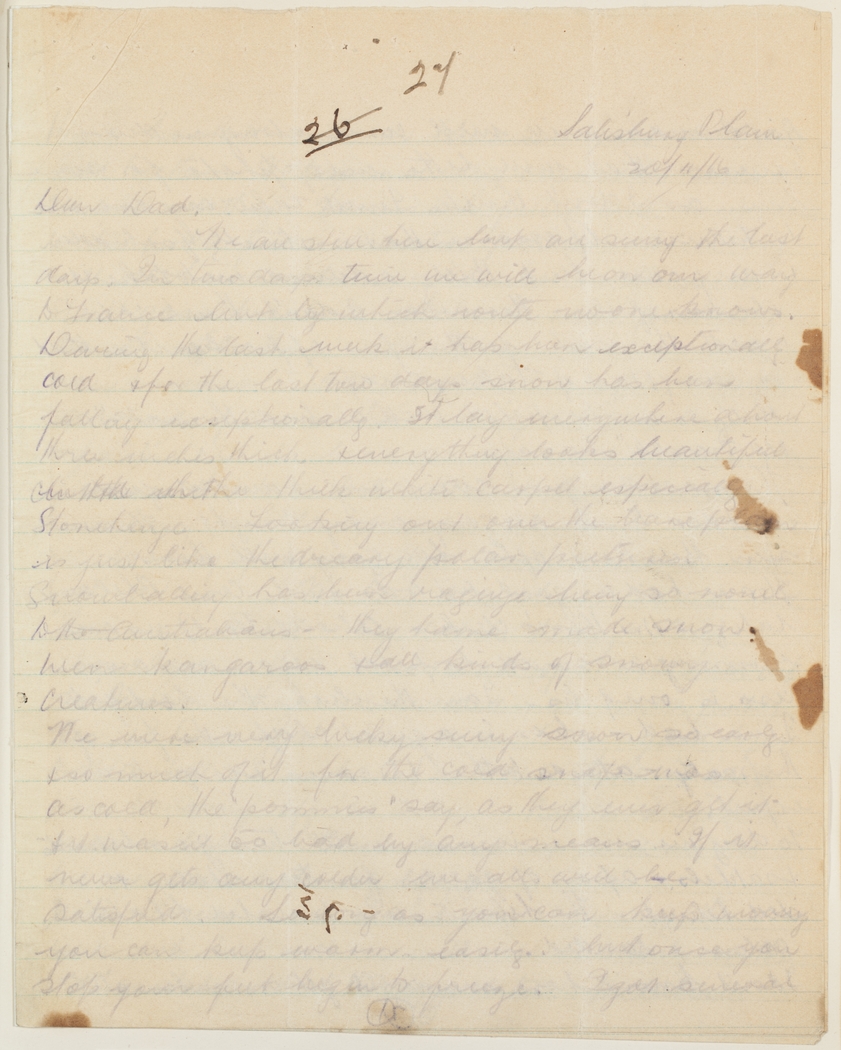 27
26
Salisbury Plain
20/11/16
Dear Dad,
We are still here but are seeing the last
days. In two days time we will be on our way
to France but by which route no one knows.
During the last week it has been exceptionally
cold & for the last two days snow has been
falling exceptionally. It lay everywhere about
three inches thick & everything looks beautiful
the thick white carpet especially
Stonehenge. Looking out over the bare
is just like the dreary polar pictures
Snowballing has been raging being so novel
to the Australians - they have made snow
men kangaroos & all kinds of snow
creatures.
We were very lucky seeing snow so early
& so much of it for the cold snap was
as cold, the "pommies" say, as they ever get it
& it wasn't so bad by any means. If it
never gets any colder we all will be
satisfied. So long as you can keep moving
you can keep warm easily. but once you
stop your feet begin to freeze. I got several